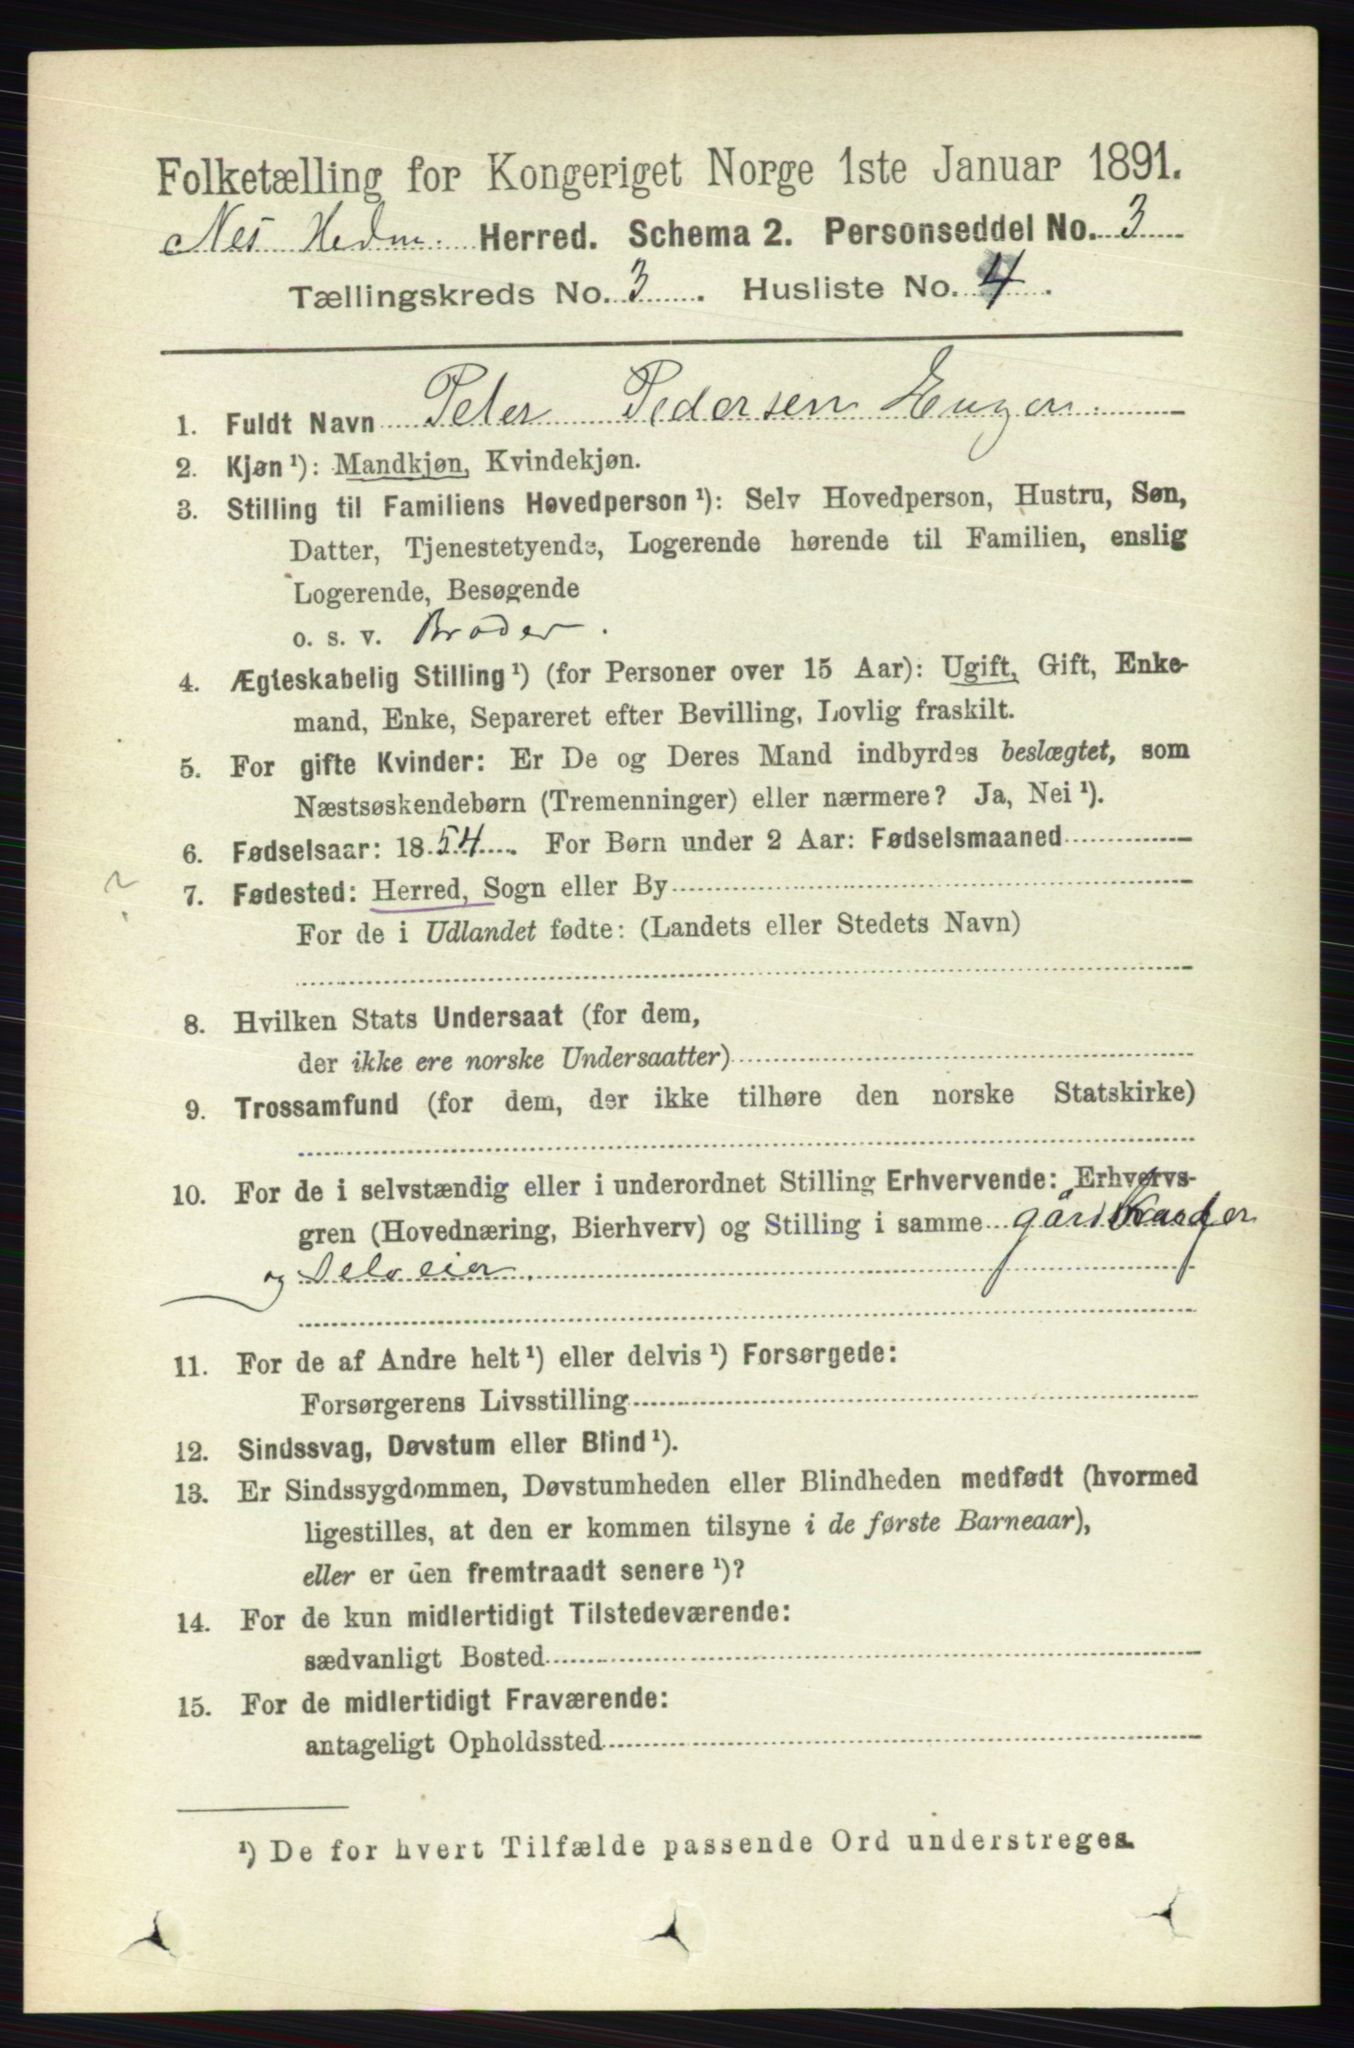 Folketælling for Kongeriget Norge 1ste Januar 1891.
Nes Hedm. Herred. Schema 2. Personseddel No. 3
Tællingskreds No. 3. Husliste No. 4.
1. Fuldt Navn Peter Pedersen Engen
2. Kjøn¹): Mandkjøn, Kvindekjøn.
3. Stilling til Familiens Hovedperson¹): Selv Hovedperson, Hustru, Søn,
Datter, Tjenestetyende, Logerende hørende til Familien, enslig
Logerende, Besøgende
o. s. v. Broder.
4. Ægteskabelig Stilling¹) (for Personer over 15 Aar): Ugift, Gift, Enke-
mand, Enke, Separeret efter Bevilling, Lovlig fraskilt.
5. For gifte Kvinder: Er De og Deres Mand indbyrdes beslægtet, som
Næstsøskendebørn (Tremenninger) eller nærmere? Ja, Nei¹).
6. Fødselsaar: 1854. For Børn under 2 Aar: Fødselsmaaned
? 7. Fødested: Herred, Sogn eller By
For de i Udlandet fødte: (Landets eller Stedets Navn)
8. Hvilken Stats Undersaat (for dem,
der ikke ere norske Undersaatter)
9. Trossamfund (for dem, der ikke tilhøre den norske Statskirke)
10. For de i selvstændig eller i underordnet Stilling Erhvervende: Erhvervs-
gren (Hovednæring, Bierhverv) og Stilling i samme
og Selveier.
11. For de af Andre helt¹) eller delvis¹) Forsørgede:
Forsørgerens Livsstilling
12. Sindssvag, Døvstum eller Blind¹).
13. Er Sindssygdommen, Døvstumheden eller Blindheden medfødt (hvormed
ligestilles, at den er kommen tilsyne i de første Barneaar),
eller er den fremtraadt senere¹)?
14. For de kun midlertidigt Tilstedeværende:
sædvanligt Bosted
15. For de midlertidigt Fraværende:
antageligt Opholdssted
¹) De for hvert Tilfælde passende Ord understreges.